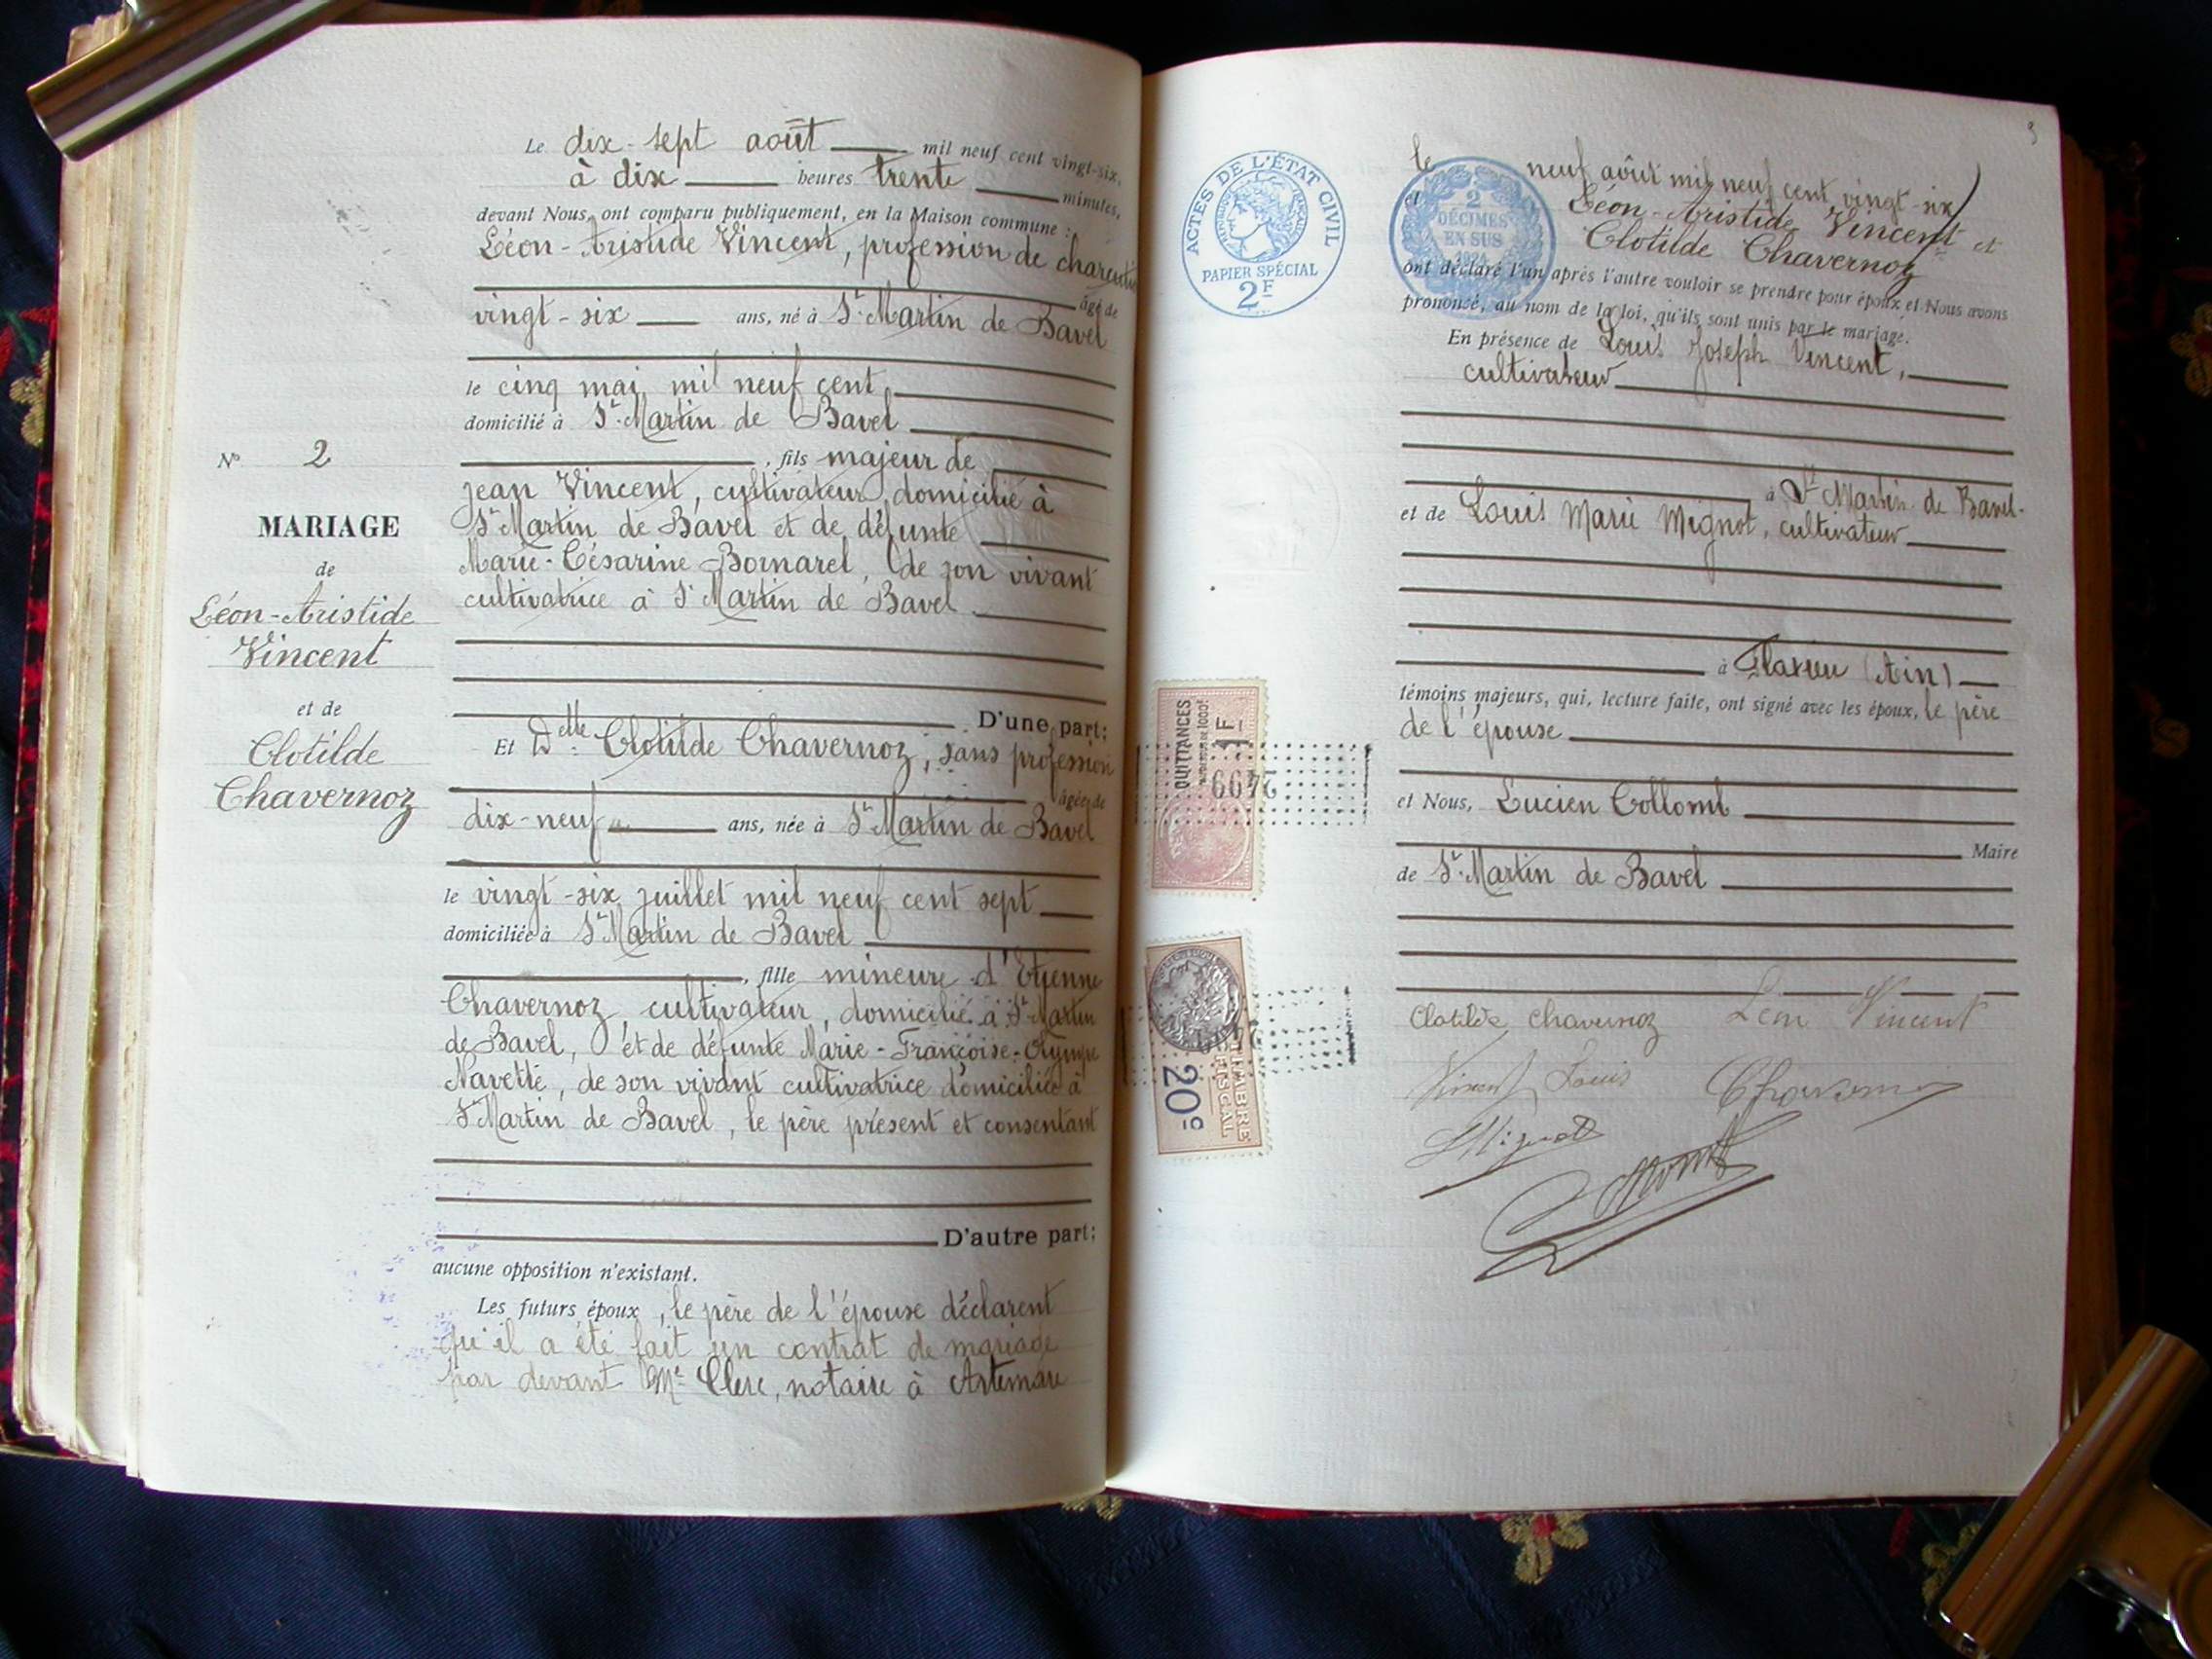 Le dix-sept août mil neuf cent vingt-six,
à dix heures trente minutes,
devant Nous, ont comparu publiquement, en la Maison commune :
Léon-Aristide Vincent, profession de
âgé de
vingt-six ans, né à St Martin de Bavel
le cinq mai mil neuf cent
domicilié à St Martin de Bavel
, fils majeur de
Jean Vincent, cultivateur domicilié à
St Martin de Bavel et de défunte
Marie-Césarine Bornarel, de son vivant
cultivatrice à St Martin de Bavel
D'une part;
Et Delle Clotilde Chavernoz, sans profession
âgée de
dix-neuf ans, née à St Martin de Bavel
le vingt-six juillet mil neuf cent sept
domiciliée à St Martin de Bavel
, fille mineure d'Etienne
Chavernoz cultivateur, domicilié à St Martin
de Bavel, et de défunte Marie-Françoise-Olympe
Navette, de son vivant cultivatrice domiciliée à
St Martin de Bavel, le père présent et consentant
D'autre part;
aucune opposition n'existant.
Les futurs époux, le père de l'épouse déclarent
qu'il a été fait un contrat de mariage
par devant Me Clerc, notaire à Artemare
No 2
MARIAGE
de
Léon-Aristide
Vincent
et de
Clotilde
Chavernoz
3
le neuf août mil neuf cent vingt-six
et Léon-Aristide Vincent et
Clotilde Chavernoz
ont déclaré l'un après l'autre vouloir se prendre pour époux et Nous avons
prononcé, au nom de la loi, qu'ils sont unis par le mariage.
En présence de Louis Joseph Vincent,
cultivateur
à St Martin de Bavel
et de Louis Marie Mignot, cultivateur
à Flaxieu (Ain)
témoins majeurs, qui, lecture faite, ont signé avec les époux, le père
de l'épouse
et Nous, Lucien Collomb
Maire
de St Martin de Bavel
Clotilde Chavernoz Léon Vincent
Vincent Louis Chavernoz
Mignot
ACTES DE L'ÉTAT CIVIL
PAPIER SPÉCIAL
2F
2
DÉCIMES
EN SUS
QUITTANCES
1F
TIMBRE
FISCAL
20c